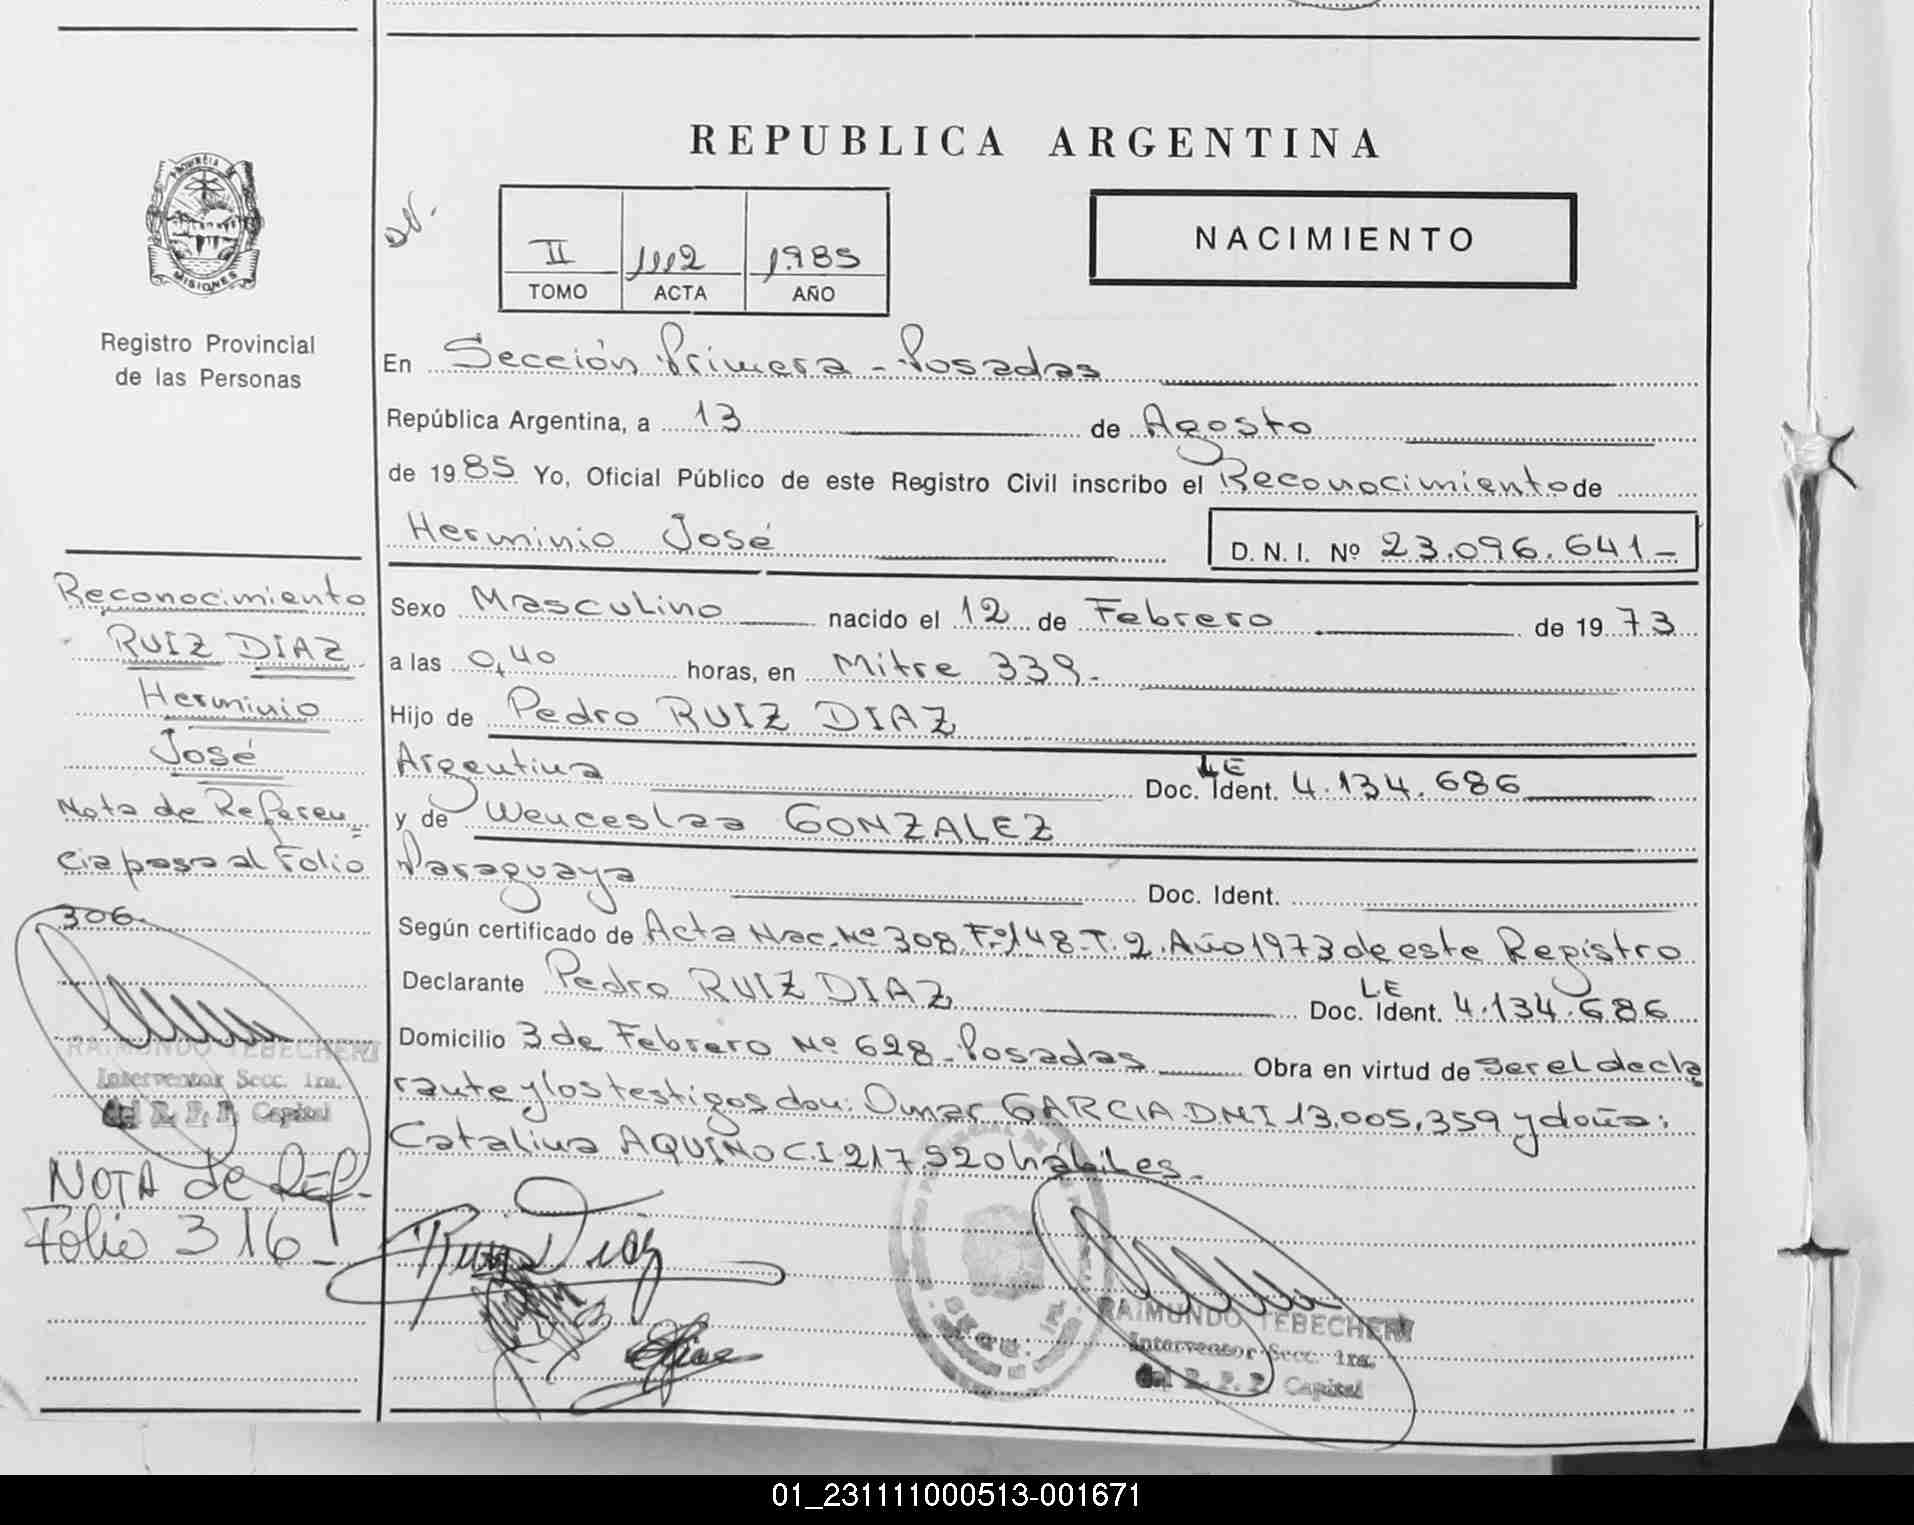 REPUBLICA ARGENTINA
PROVINCIA DE
MISIONES
Registro Provincial
de las Personas
II 1112 1985
TOMO ACTA AÑO
NACIMIENTO
En Sección Primera - Posadas
República Argentina, a 13 de Agosto
de 1985 Yo, Oficial Público de este Registro Civil inscribo el Reconocimiento de
Herminio José D. N. I. Nº 23.096.641-
Sexo Masculino nacido el 12 de Febrero de 1973
a las 0,40 horas, en Mitre 339.-
Hijo de Pedro RUIZ DIAZ
Argentina Doc. Ident. LE 4.134.686
y de Wenceslaa GONZALEZ
Paraguaya Doc. Ident.
Según certificado de Acta Nac. Nº 308. Fº 148-T. 2. Año 1973 de este Registro
Declarante Pedro RUIZ DIAZ Doc. Ident. LE 4.134.686
Domicilio 3 de Febrero Nº 628-Posadas Obra en virtud de ser el decla
rante y los testigos don: Omar GARCIA.DNI 13.005.359 y doña:
Catalina AQUINO C.I 217.920 hábiles.-
Reconocimiento
RUIZ DIAZ
Herminio
José
Nota de Referen-
cia pasa al Folio
306.-
RAIMUNDO TEBECHERI
Interventor Secc. 1ra.
del R. P. P. Capital
NOTA de REF.-
Folio 316-
Ruiz Diaz
RAIMUNDO TEBECHERI
Interventor Secc. 1ra.
del R. P. P. Capital
01_231111000513-001671